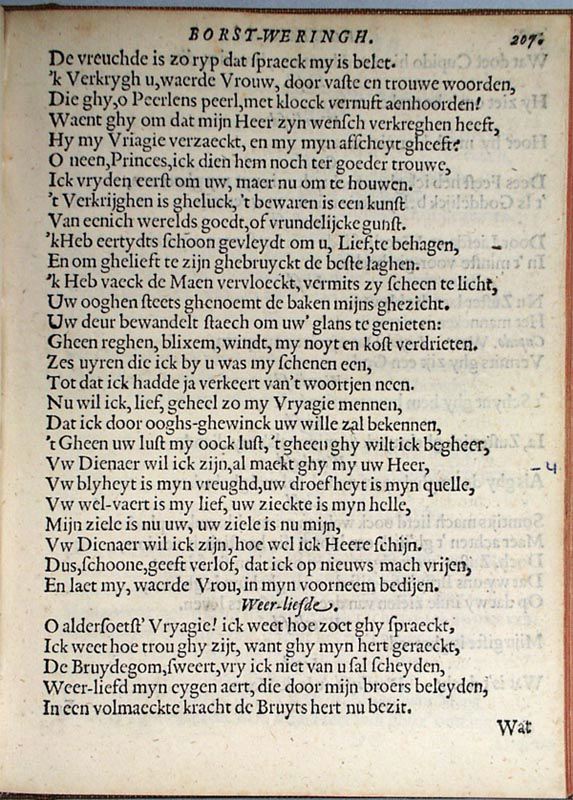 BORST-WERINGH. 207.
De vreuchde is zo ryp dat spraeck my is belet.
'k Verkrygh u, waerde Vrouw, door vaste en trouwe woorden,
Die ghy, o Peerlens peerl, met kloeck vernuft aenhoorden!
Waent ghy om dat mijn Heer zyn wensch verkreghen heeft,
Hy my Vriagie verzaeckt, en my myn afscheyt gheeft?
O neen, Princes, ick dien hem noch ter goeder trouwe,
Ick vryden eerst om uw, maer nu om te houwen.
't Verkrijghen is gheluck, 't bewaren is een kunst
Van eenich werelds goedt, of vrundelijcke gunst.
'kHeb eertydts schoon gevleydt om u, Lief, te behagen,
En om ghelieft te zijn ghebruyckt de beste laghen.
'k Heb vaeck de Maen vervloeckt, vermits zy scheen te licht,
Uw ooghen steets ghenoemt de baken mijns ghezicht.
Uw deur bewandelt staech om uw' glans te genieten:
Gheen reghen, blixem, windt, my noyt en kost verdrieten.
Zes uyren die ick by u was my schenen een,
Tot dat ick hadde ja verkeert van't woortjen neen.
Nu wil ick, lief, geheel zo my Vryagie mennen,
Dat ick door ooghs-ghewinck uw wille zal bekennen,
't Gheen uw lust my oock lust, 't gheen ghy wilt ick begheer,
Vw Dienaer wil ick zijn, al maekt ghy my uw Heer,
Vw blyheyt is myn vreughd, uw droefheyt is myn quelle,
Vw wel-vaert is my lief, uw zieckte is myn helle,
Mijn ziele is nu uw, uw ziele is nu mijn,
Vw Dienaer wil ick zijn, hoe wel ick Heere schijn.
Dus, schoone, geeft verlof, dat ick op nieuws mach vrijen,
En laet my, waerde Vrou, in myn voorneem bedijen.
Weer-liefde.
O aldersoetst' Vryagie! ick weet hoe zoet ghy spraeckt,
Ick weet hoe trou ghy zijt, want ghy myn hert geraeckt,
De Bruydegom, sweert, vry ick niet van u sal scheyden,
Weer-liefd myn eygen aert, die door mijn broers beleyden,
In een volmaeckte kracht de Bruyts hert nu bezit.
Wat